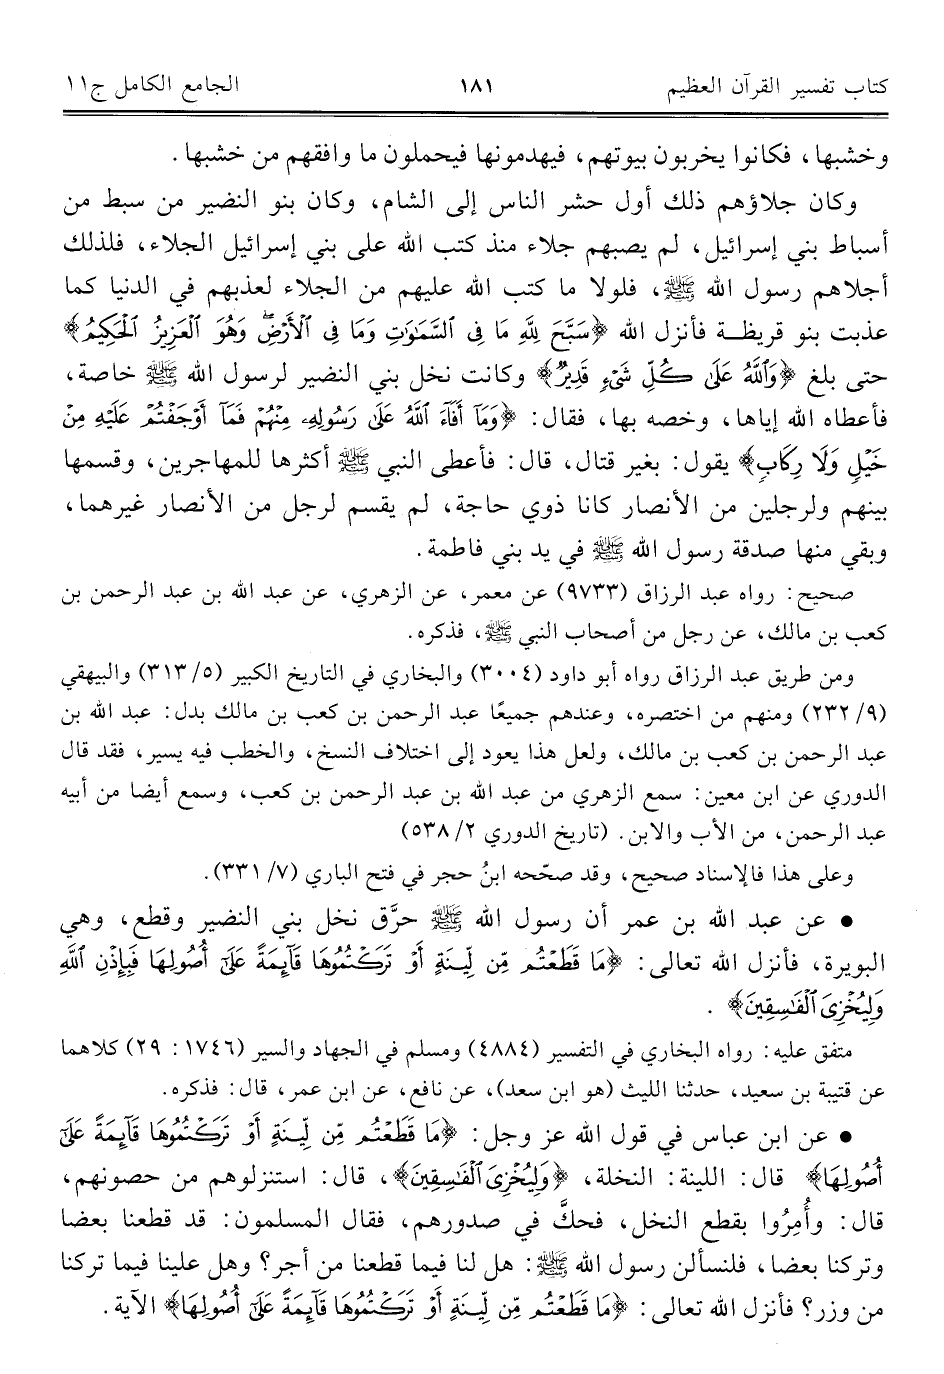 كتاب تفسير القرآن العظيم ١٨١ الجامع الكامل ج١١
وخشبها، فكانوا يخربون بيوتهم، فيهدمونها فيحملون ما وافقهم من خشبها.
وكان جلاؤهم ذلك أول حشر الناس إلى الشام، وكان بنو النضير من سبط من
أسباط بني إسرائيل، لم يصبهم جلاء منذ كتب الله على بني إسرائيل الجلاء، فلذلك
أجلاهم رسول الله ﷺ، فلولا ما كتب الله عليهم من الجلاء لعذبهم في الدنيا كما
عذبت بنو قريظة فأنزل الله ﴿سَبَّحَ لِلَّهِ مَا فِى ٱلسَّمَٰوَٰتِ وَمَا فِى ٱلْأَرْضِۖ وَهُوَ ٱلْعَزِيزُ ٱلْحَكِيمُ﴾
حتى بلغ ﴿وَٱللَّهُ عَلَىٰ كُلِّ شَىْءٍ قَدِيرٌ﴾ وكانت نخل بني النضير لرسول الله ﷺ خاصة،
فأعطاه الله إياها، وخصه بها، فقال: ﴿وَمَآ أَفَآءَ ٱللَّهُ عَلَىٰ رَسُولِهِۦ مِنْهُمْ فَمَآ أَوْجَفْتُمْ عَلَيْهِ مِنْ
خَيْلٍ وَلَا رِكَابٍ﴾ يقول: بغير قتال، قال: فأعطى النبي ﷺ أكثرها للمهاجرين، وقسمها
بينهم ولرجلين من الأنصار كانا ذوي حاجة، لم يقسم لرجل من الأنصار غيرهما،
وبقي منها صدقة رسول الله ﷺ في يد بني فاطمة.
صحيح: رواه عبد الرزاق (٩٧٣٣) عن معمر، عن الزهري، عن عبد الله بن عبد الرحمن بن
كعب بن مالك، عن رجل من أصحاب النبي ﷺ، فذكره.
ومن طريق عبد الرزاق رواه أبو داود (٣٠٠٤) والبخاري في التاريخ الكبير (٥/ ٣١٣) والبيهقي
(٩/ ٢٣٢) ومنهم من اختصره، وعندهم جميعًا عبد الرحمن بن كعب بن مالك بدل: عبد الله بن
عبد الرحمن بن كعب بن مالك، ولعل هذا يعود إلى اختلاف النسخ، والخطب فيه يسير، فقد قال
الدوري عن ابن معين: سمع الزهري من عبد الله بن عبد الرحمن بن كعب، وسمع أيضا من أبيه
عبد الرحمن، من الأب والابن. (تاريخ الدوري ٢/ ٥٣٨)
وعلى هذا فالإسناد صحيح، وقد صحّحه ابنُ حجر في فتح الباري (٧/ ٣٣١).
● عن عبد الله بن عمر أن رسول الله ﷺ حرَّق نخل بني النضير وقطع، وهي
البويرة، فأنزل الله تعالى: ﴿مَا قَطَعْتُم مِّن لِّينَةٍ أَوْ تَرَكْتُمُوهَا قَآئِمَةً عَلَىٰٓ أُصُولِهَا فَبِإِذْنِ ٱللَّهِ
وَلِيُخْزِىَ ٱلْفَٰسِقِينَ﴾ .
متفق عليه: رواه البخاري في التفسير (٤٨٨٤) ومسلم في الجهاد والسير (١٧٤٦: ٢٩) كلاهما
عن قتيبة بن سعيد، حدثنا الليث (هو ابن سعد)، عن نافع، عن ابن عمر، قال: فذكره.
● عن ابن عباس في قول الله عز وجل: ﴿مَا قَطَعْتُم مِّن لِّينَةٍ أَوْ تَرَكْتُمُوهَا قَآئِمَةً عَلَىٰٓ
أُصُولِهَا﴾ قال: اللينة: النخلة، ﴿وَلِيُخْزِىَ ٱلْفَٰسِقِينَ﴾، قال: استنزلوهم من حصونهم،
قال: وأُمِرُوا بقطع النخل، فحكَّ في صدورهم، فقال المسلمون: قد قطعنا بعضا
وتركنا بعضا، فلنسألن رسول الله ﷺ: هل لنا فيما قطعنا من أجر؟ وهل علينا فيما تركنا
من وزر؟ فأنزل الله تعالى: ﴿مَا قَطَعْتُم مِّن لِّينَةٍ أَوْ تَرَكْتُمُوهَا قَآئِمَةً عَلَىٰٓ أُصُولِهَا﴾ الآية.